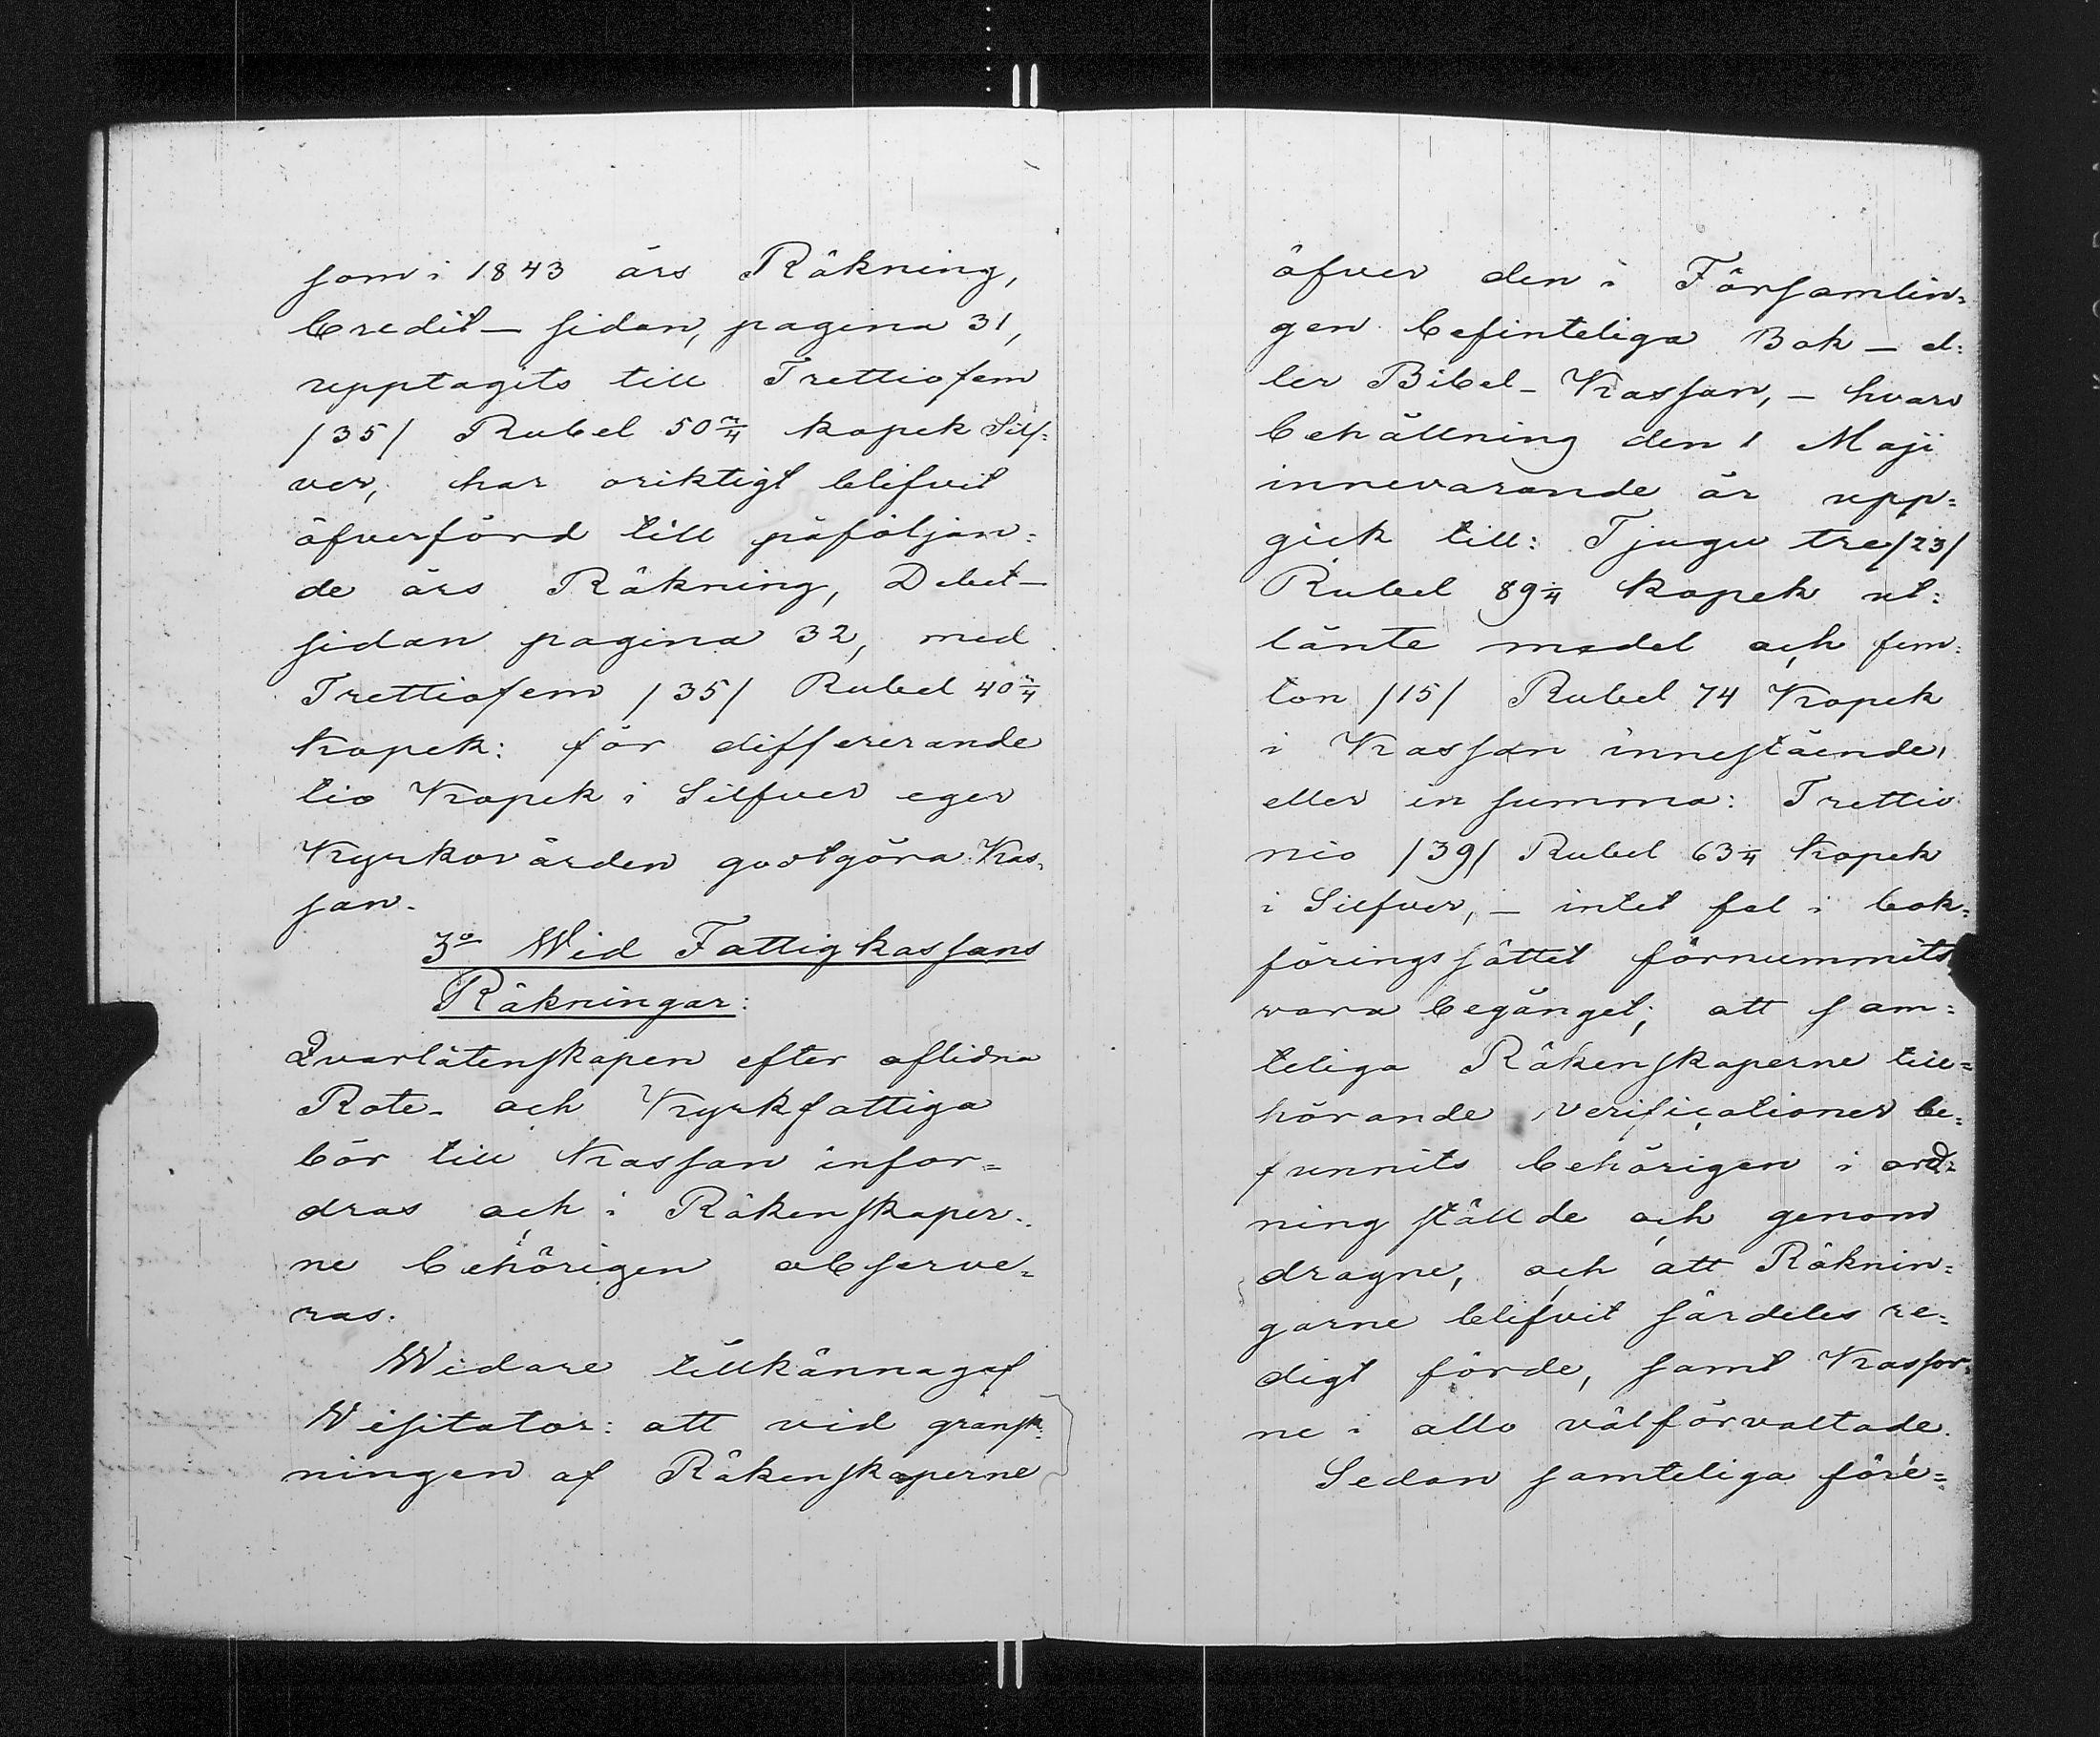 som i 1843 års Räkning,
Credit- sidan, pagina 31,
upptagits till Trettiofem
/35/ Rubel 50 2/4 kopek Silf=
ver, har oriktigt blifvit
öfverförd till påföljan=
de års Räkning, Debet-
sidan pagina 32, med
Trettiofem /35/ Rubel 40 2/4
kopek: för differerande
tio Kopek i Silfver eger
Kyrkovärden godtgöra Kas=
san.
3o Wid Fattigkassans
Räkningar:
Qvarlåtenskapen efter aflidna
Rote- och Kyrkfattiga
bör till Kassan infor=
dras och i Räkenskaper=
ne behörigen observe=
ras.
Widare tillkännagaf
Visitator: att vid gransk=
ningen af Räkenskaperne
öfver den i Församlin=
gen befinteliga Bok - el=
ler Bibel-Kassan, - hvars
behållning den 1 Maji
innevarande år upp=
gick till: Tjugu tre /23/
Rubel 89 1/4 kopek ut=
lånte medel och fem=
ton /15/ Rubel 74 Kopek
i Kassan innestående,
eller in summa: Trettio
nio /39/ Rubel 63 1/4 kopek
i Silfver, - intet fel i bok=
föringssättet förnummits
vara begånget; att sam=
teliga Räkenskaperne till=
hörande verificationer be=
funnits behörigen i ord=
ning ställde och genom
dragne, och att Räknin=
garne blifvit särdeles re=
digt förde, samt Kassor=
ne i allo välförvaltade.
Sedan samteliga före=